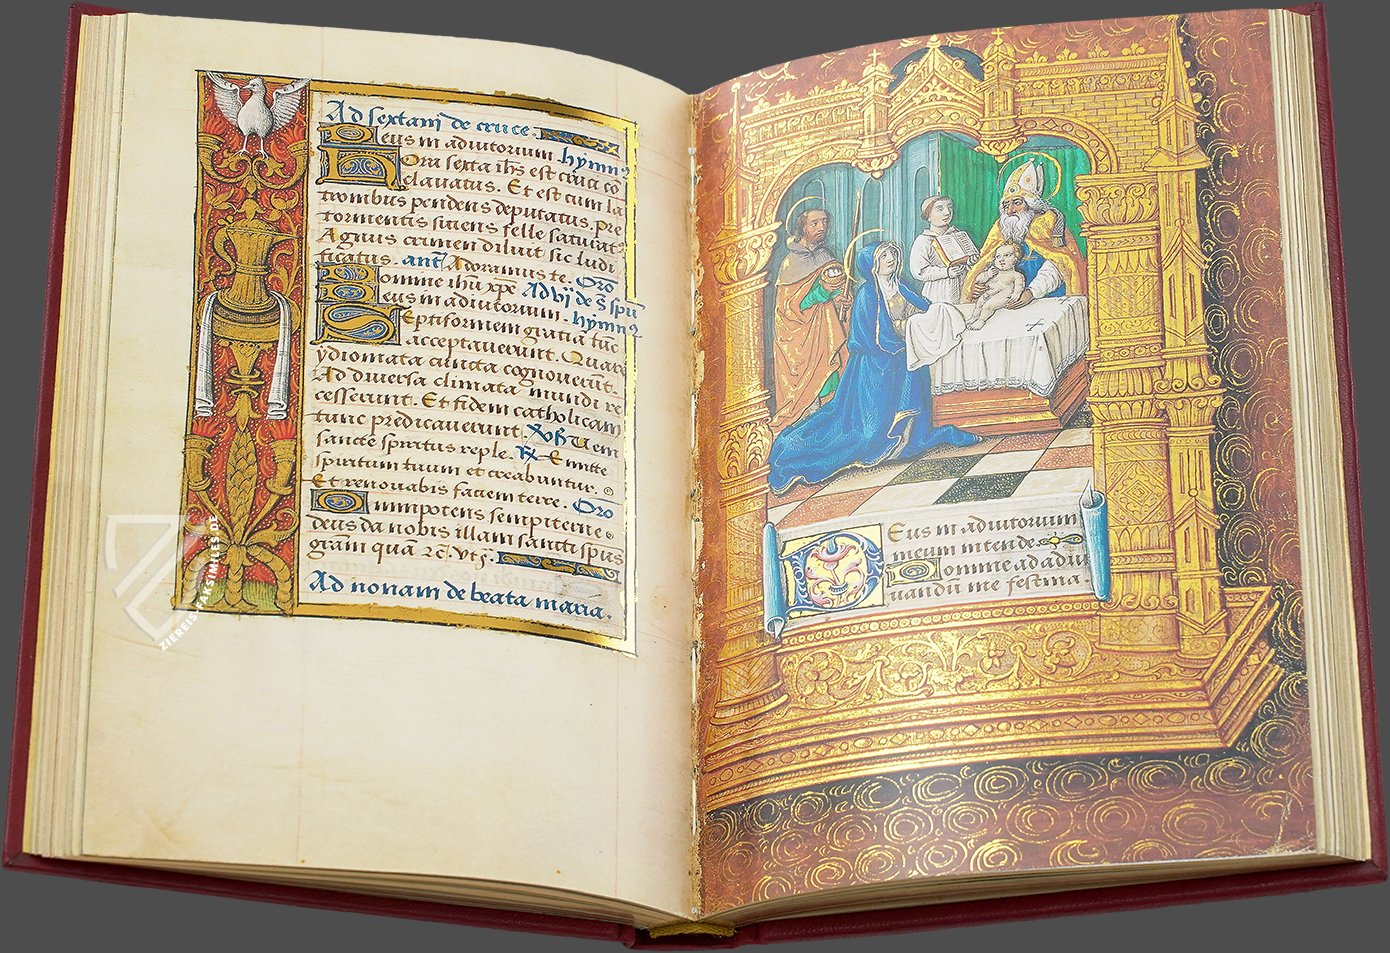 Ad sextam de cruce.
Deus in adiutorium. hymnꝰ
Hora sexta ihs est cruci cō
clavatus. Et est cum la
tronibus pendens deputatus. Pre
tormentis sitiens felle saturatꝰ
Agnus crimen diluit sic ludi
ficatus. ant Adoramus te. Oro
Domine ihū xpe Ad vi de s spū
Deus in adiutorium. hymnꝰ
Septiformem gratiā tūc
acceptaverunt. Quare
ydiomata cuncta cognoverūt.
Ad diversa climata mundi re
cesserunt. Et fidem catholicam
tunc predicaverunt.
sancte spiritus reple. ℟ Emitte
spiritum tuum et creabuntur.
Et renovabis faciem terre. Oro
Omnipotens sempiterne
deus da nobis illam sancti spūs
grām quā
Ad nonam de beata maria.
ZIEREIS FAKSIMILES.DE
Deus in adiutorium
meum intende.
Domine ad adiu
vandū me festina.